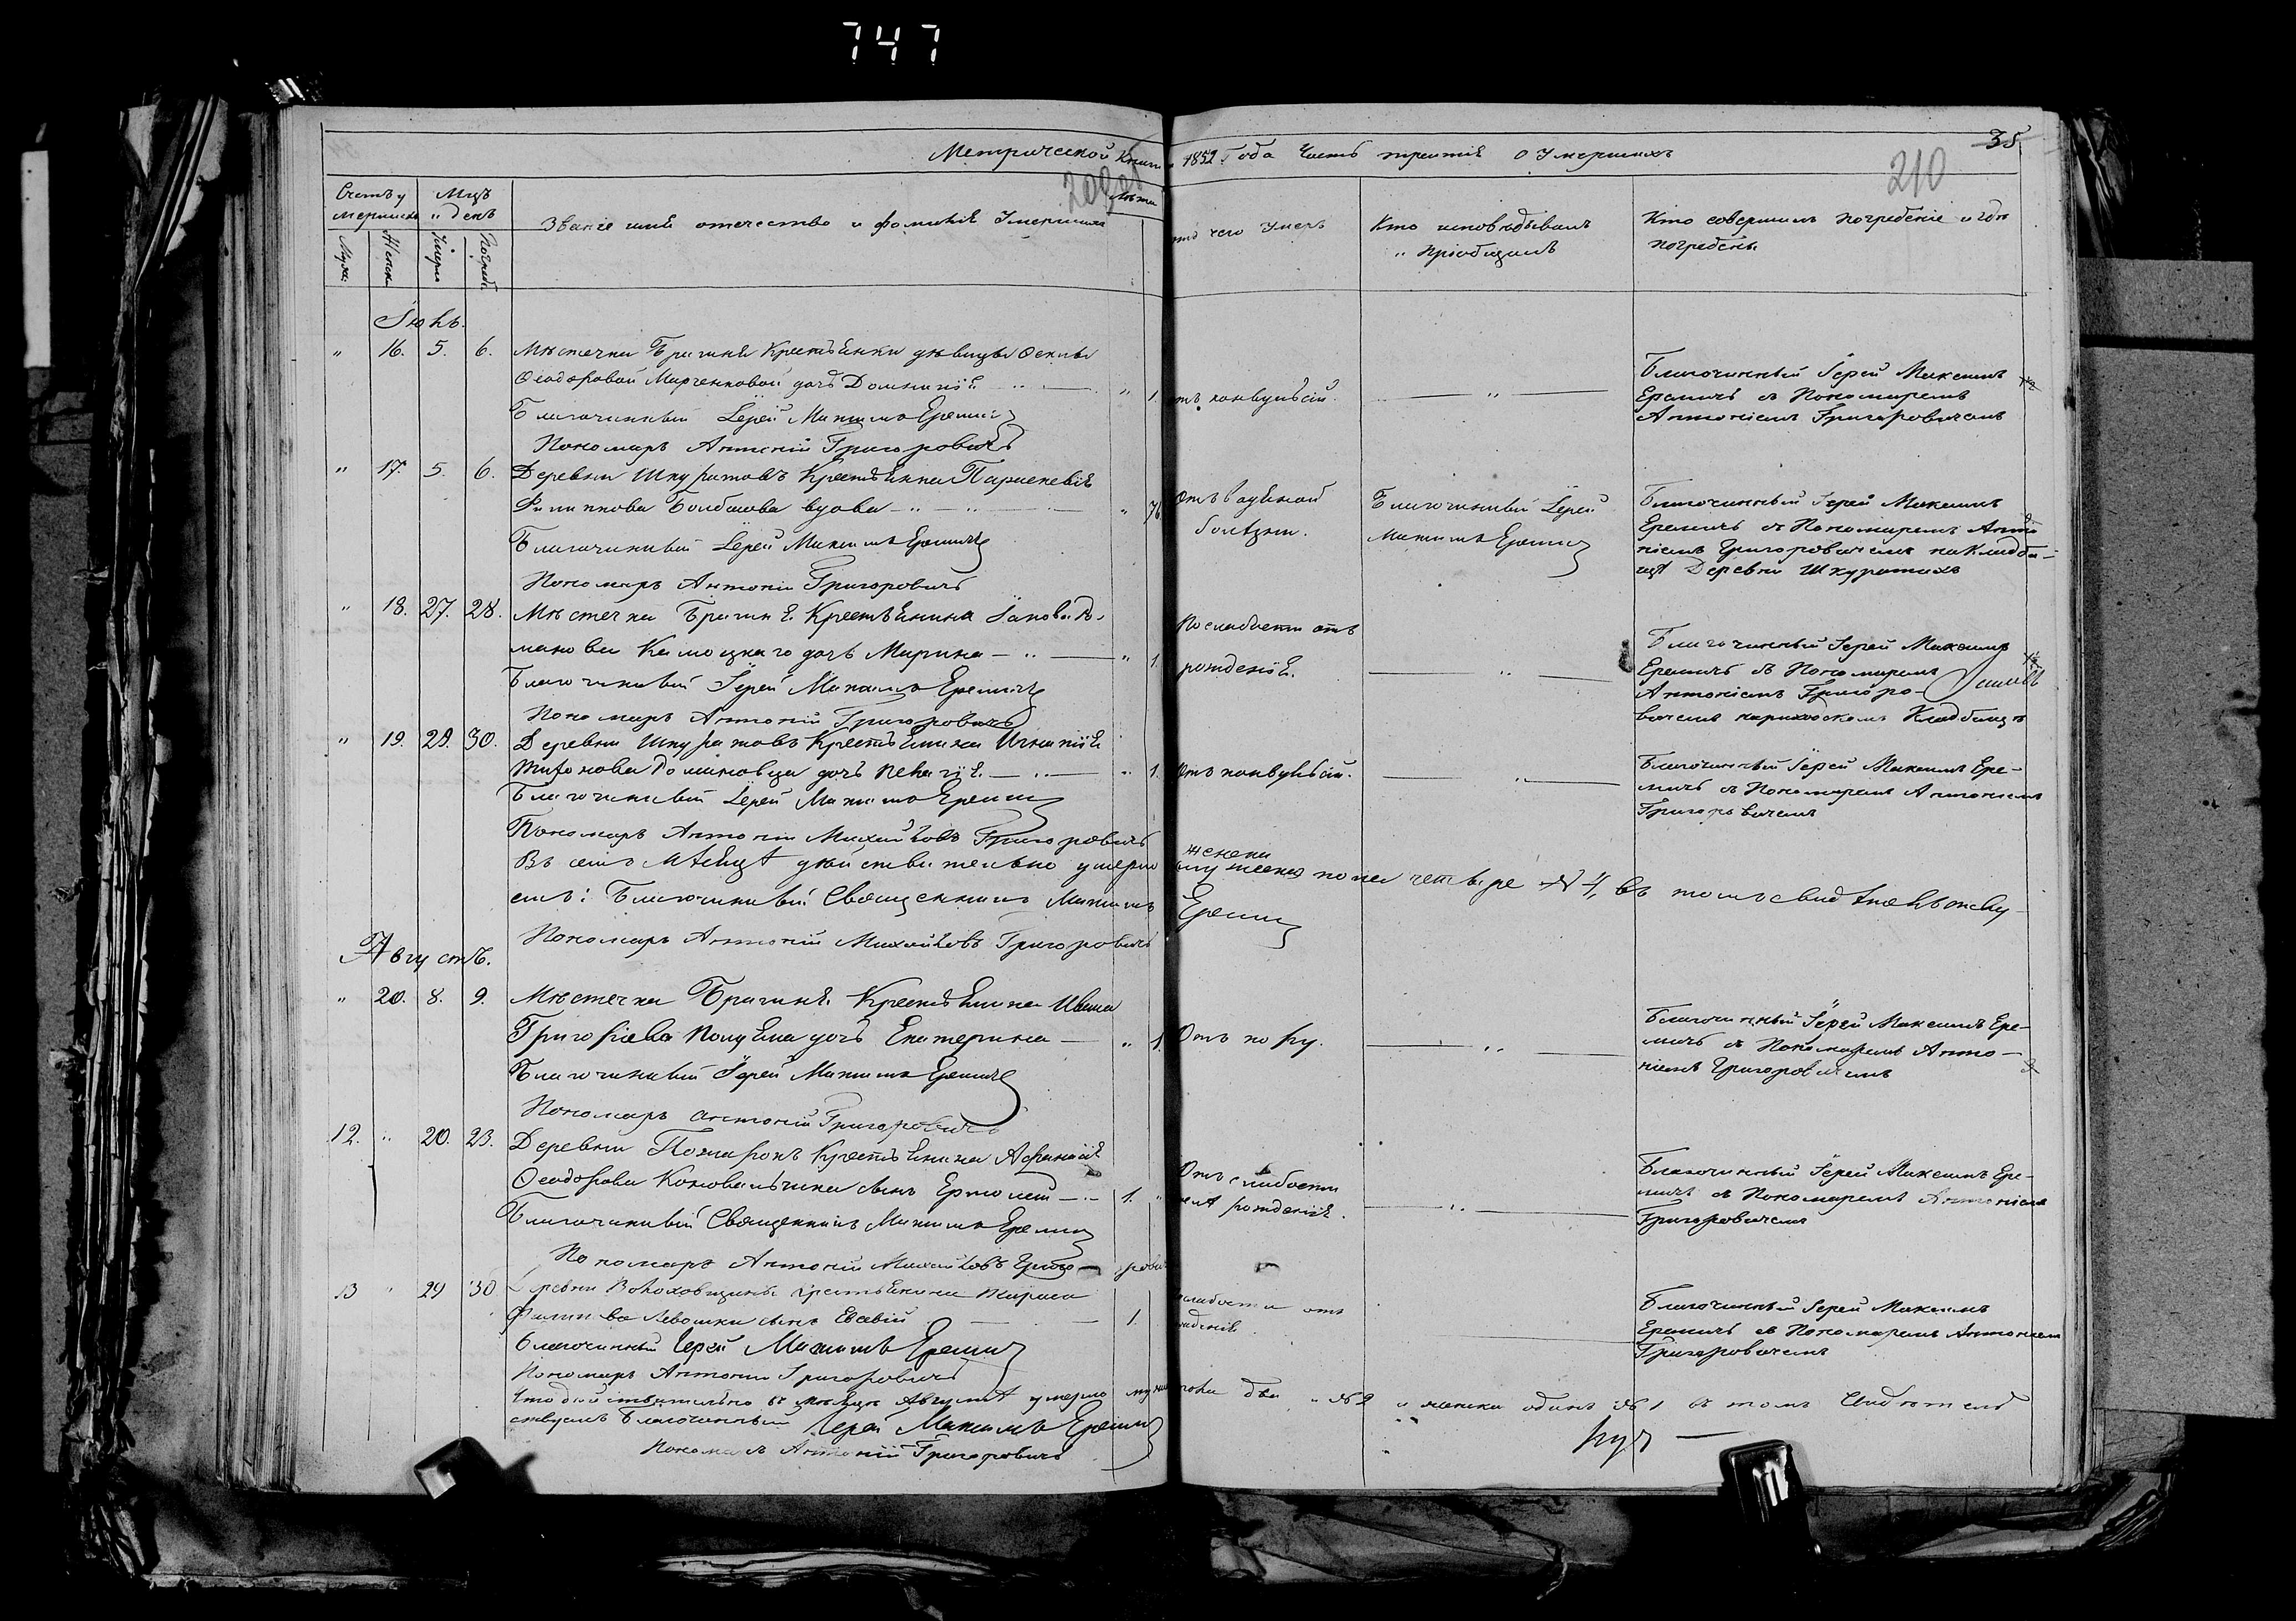 747
Метрической Книги 1852 Года Часть третія о Умершихъ
35
210
Счетъ умершихъ
Мцъ и день
Званіе имя отечество и фамилія Умершихъ
Лѣта
отъ чего Умеръ
Кто исповѣдывалъ
и пріобщалъ
Кто совершилъ погребеніе и гдѣ
погребены
Муж.
Женск.
Умерло
Погреб.
Іюль.
" 16. 5. 6. Мѣстечка Брагиня Крестьянки дѣвицы
Ѳеодоровой Марченковой дочь Домникія " 1. отъ конвульсій.
Благочинный Іерей Максимъ Еремичъ
Пономаръ Антоній Григоровичъ
Благочинный Іерей Максимъ
Еремичъ съ Пономаремъ
Антоніемъ Григоровичемъ
" 17. 5. 6. Деревни Шкуратовъ Крестьянка Параскевія
Филипова вдова " 76
Благочинный Іерей Максимъ Еремичъ
Пономаръ Антоній Григоровичъ
Отъ
болезни.
Благочинный Іерей
Максимъ Еремичъ
Благочинный Іерей Максимъ
Еремичъ съ Пономаремъ Анто
ніемъ Григоровичемъ на Кладби-
щѣ Деревни Шкуратахъ
" 18. 27. 28. Мѣстечка Брагиня Крестьянина Іакова Ро-
манова дочь Марина " 1.
Благочинный Іерей Максимъ Еремичъ
Пономаръ Антоній Григоровичъ
По слабости отъ
рожденія.
Благочинный Іерей Максимъ
Еремичъ съ Пономаремъ
Антоніемъ Григоро-
вичемъ приходскомъ Кладбищѣ
" 19. 29. 30. Деревни Шкуратовъ Крестьянина Игнатія
дочь Пелагія " 1. Отъ конвульсій.
Благочинный Іерей Максимъ Еремичъ
Пономаръ Антоній Михайловъ Григоровичъ
Благочинный Іерей Максимъ Ере-
мичъ съ Пономаремъ Антоніемъ
Григоровичемъ
Въ семъ мѣсяцѣ дѣйствительно умерло женска пола четыре №4, въ томъ свидѣтельству-
емъ: Благочинный Священникъ Максимъ Еремичъ
Пономаръ Антоній Михайловъ Григоровичъ
Августъ.
" 20. 8. 9. Мѣстечка Брагиня Крестьянина Ивана
Григоріева дочь Екатерина " 1. Отъ кору.
Благочинный Іерей Максимъ Еремичъ
Пономаръ Антоній Григоровичъ
Благочинный Іерей Максимъ Ере-
мичъ съ Пономаремъ Анто-
ніемъ Григоровичемъ
12. " 20. 23. Деревни Крестьянина Афанасія
Ѳеодорова сынъ 1. "
Благочинный Священникъ Максимъ Еремичъ
Пономаръ Антоній Михайловъ Григоровичъ
Отъ слабости
рожденія.
Благочинный Іерей Максимъ Ере-
мичъ съ Пономаремъ Антоніемъ
Григоровичемъ
13 " 29 30 Деревни Крестьянина Тараса
Левошки сынъ 1.
Благочинный Іерей Максимъ Еремичъ
Пономаръ Антоній Григоровичъ
слабости отъ
Благочинный Іерей Максимъ
Еремичъ съ Пономаремъ Антоніемъ
Григоровичемъ
Что дѣйствительно въ мѣсяцѣ Августѣ умерло пола два №2 и женска одинъ №1 въ томъ Свидѣтель
ствуемъ Благочинный Іерей Максимъ Еремичъ
Пономаръ Антоній Григоровичъ